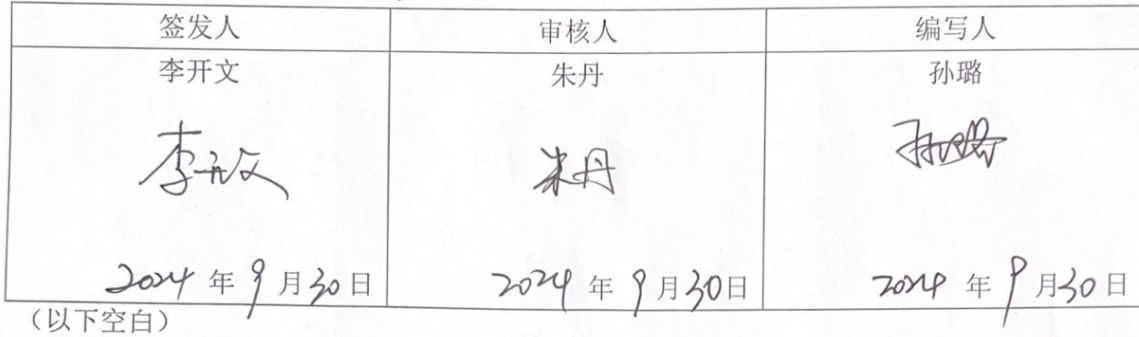 签发人 审核人 编写人
李开文 朱丹 孙璐
李开文 朱丹 孙璐
2024年9月30日 2024年9月30日 2024年9月30日
（以下空白）